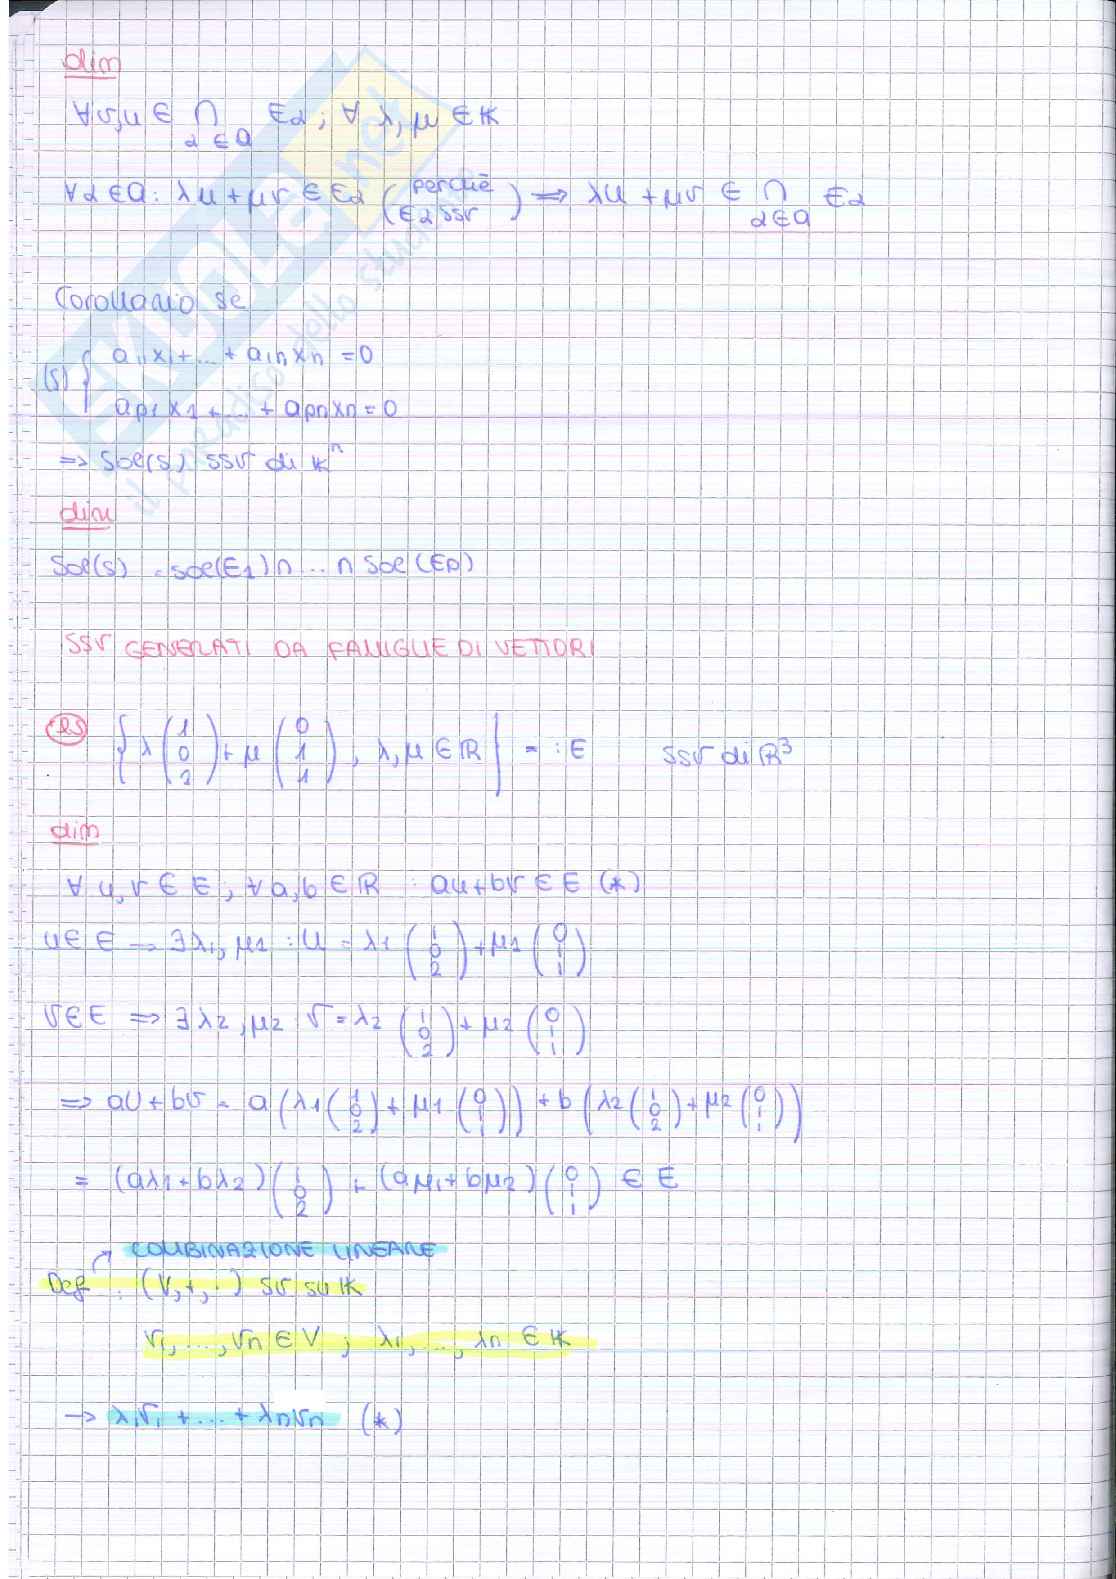 dim
∀ v,u ∈ ∩ α∈a Eα ; ∀ λ, μ ∈ K
∀α∈a: λu + μv ∈ Eα (perchè Eα ssv) ⟹ λu + μv ∈ ∩ α∈a Eα
Corollario se
(S) { a11x1 + ... + a1nxn = 0
ap1x1 + ... + apnxn = 0
⟹ Sol(S) ssv di Kⁿ
dim
Sol(S) = Sol(E1) ∩ ... ∩ Sol(Ep)
SSV GENERATI DA FAMIGLIE DI VETTORI
es { λ (1 0 2) + μ (0 1 1), λ, μ ∈ R } = : E ssv di R³
dim
∀ u,v ∈ E ; ∀ a,b ∈ R : au + bv ∈ E (*)
u ∈ E → ∃ λ1, μ1 : u = λ1 (1 0 2) + μ1 (0 1 1)
v ∈ E ⟹ ∃ λ2, μ2 v = λ2 (1 0 2) + μ2 (0 1 1)
⟹ au + bv = a (λ1 (1 0 2) + μ1 (0 1 1)) + b (λ2 (1 0 2) + μ2 (0 1 1))
= (aλ1 + bλ2) (1 0 2) + (aμ1 + bμ2) (0 1 1) ∈ E
COMBINAZIONE LINEARE
Def : (V, +, ·) sv su K
v1, ..., vn ∈ V ; λ1, ..., λn ∈ K
→ λ1v1 + ... + λnvn (*)